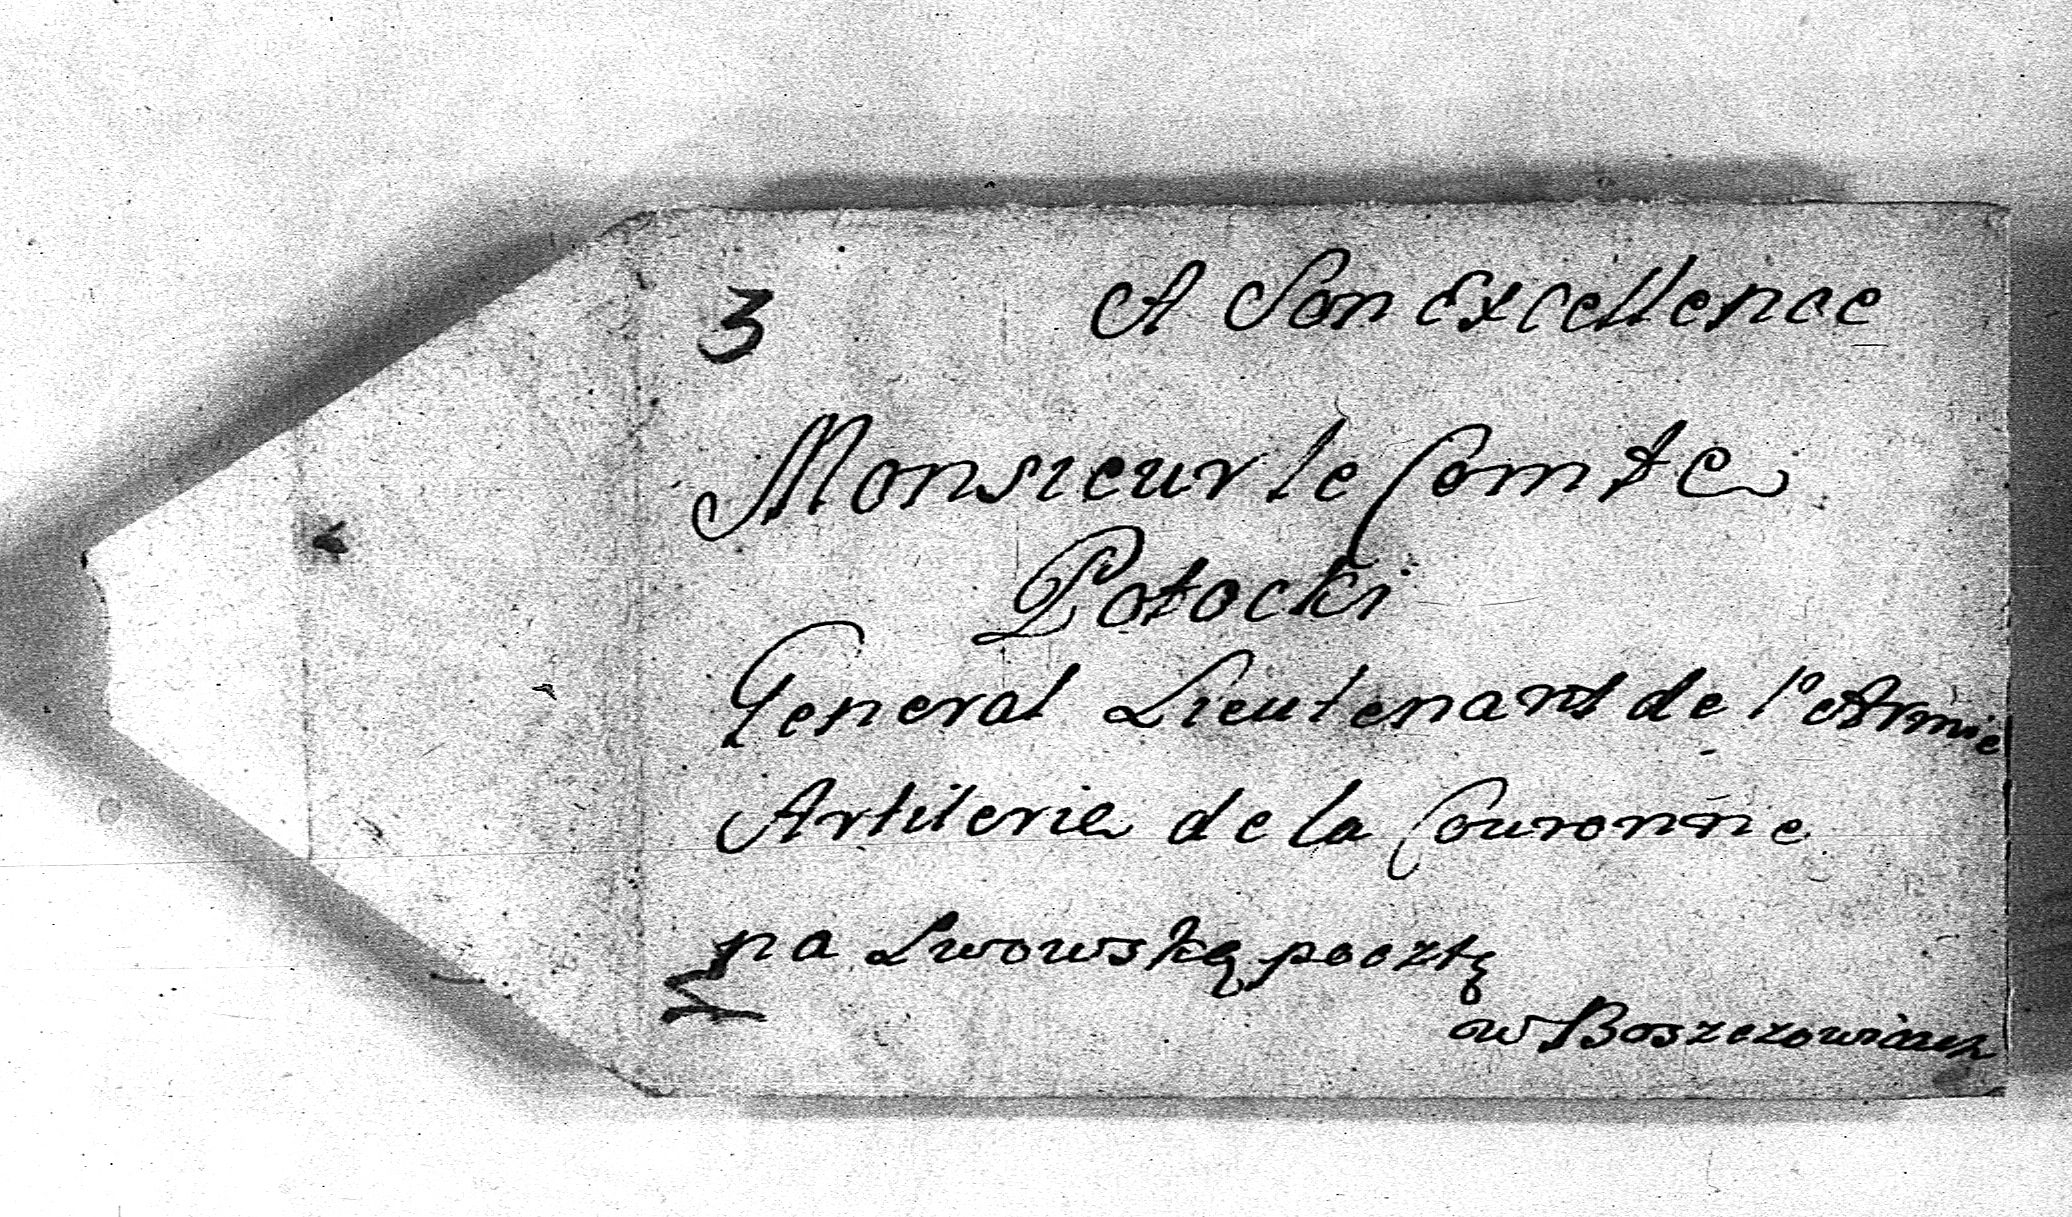 3 A Son Excellence
Monsieur le Comte
Potocki
General Lieutenant de l'Armie
Artilerie de la Couronne
na Lwowską pocztę
w Boszczowicach